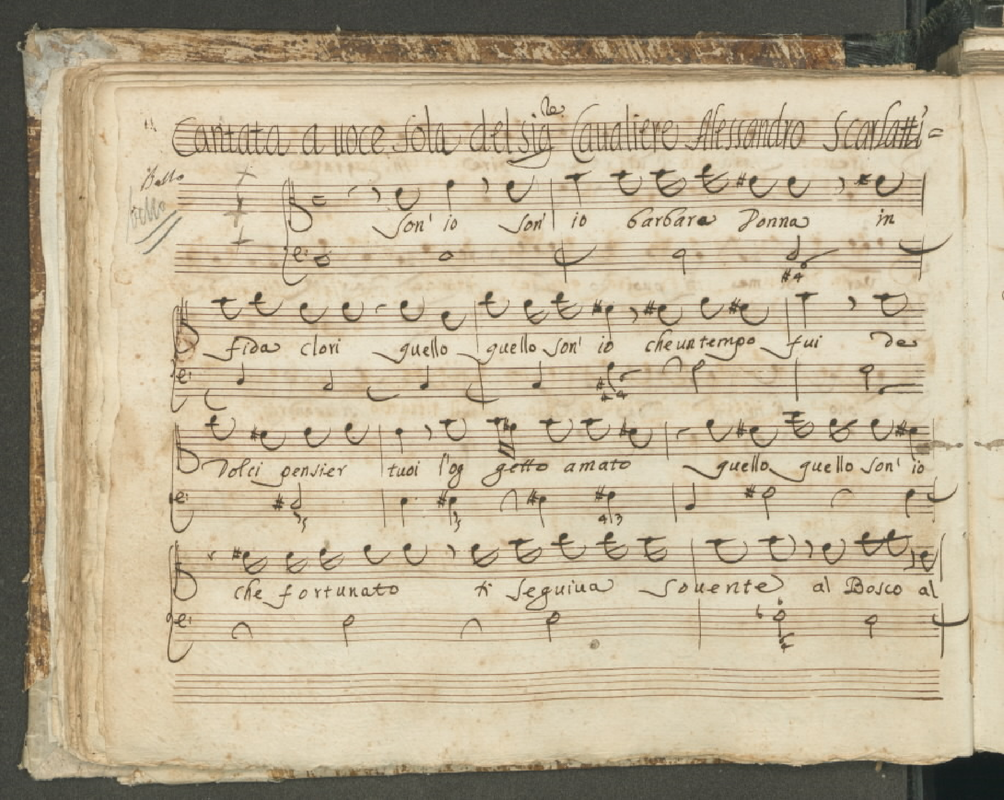 Cantata a uoce sola del sig.le Caualiere Alessandro Scarlatti
Bello
bello
son' io son' io barbara Donna in
fida clori quello quello son' io che un tempo fui de
Dolci pensier tuoi l'og getto amato quello quello son' io
che fortunato ti seguiua souente al Bosco al